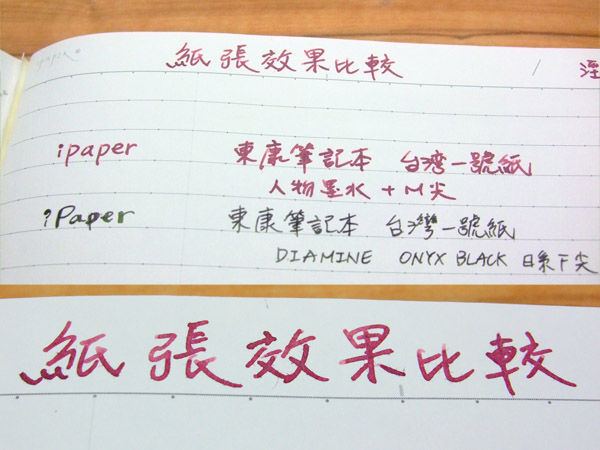 紙張效果比較
ipaper 東康筆記本 台湾一號紙
人物墨水 + M尖
iPaper 東康筆記本 台灣一號紙
DIAMINE ONYX BLACK 日系F尖
紙張效果比較